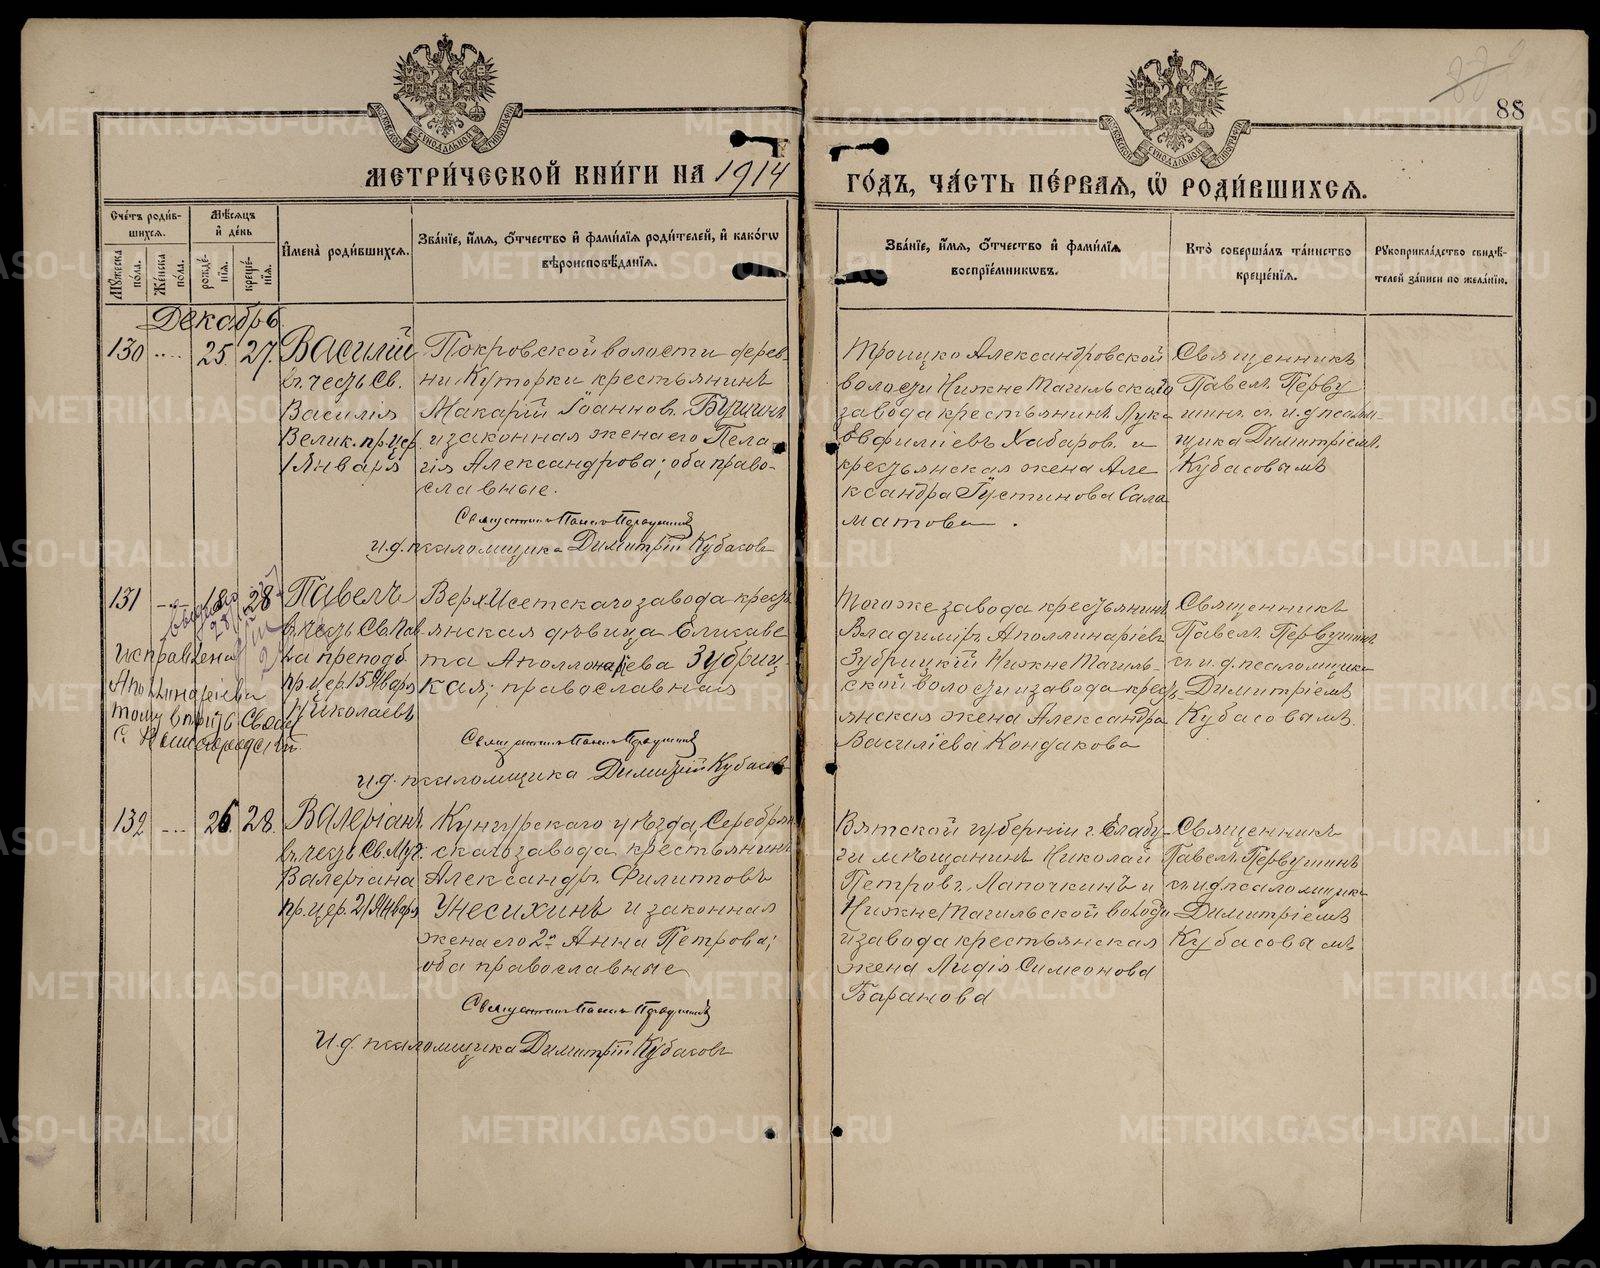 88
МЕТРИ́ЧЕСКОЙ КНИ́ГИ НА 1914
ГО́ДЪ, ЧА́СТЬ ПЕ́РВАЯ, Ѽ РОДИ́ВШИХСЯ.
Сче́тъ роди́в-
шихся.
Мѣ́сяцъ
и҆ де́нь
Мꙋ́жеска
по́ла.
Же́нска
по́ла.
рожде́-
нїя.
креще́-
нїя.
И҆мена̀ роди́вшихся.
Зва́нїе, и҆́мя, ѻ҆́тчество и҆ фами́лїя роди́телей, и҆ како́гѡ
вѣроисповѣ́данїя.
Зва́нїе, и҆́мя, ѻ҆́тчество и҆ фами́лїя
воспрїе́мникѡвъ.
Кто̀ соверша́лъ та́инство
креще́нїя.
Рꙋкоприкла́дство свидѣ́-
телей за́писи по жела́нїю.
Декабрь
130 .... 25. 27.
Василій
въ честь Св.
Василія
Велик. пр. цер.
1 Января
Покровской волости дерев-
ни Куторки крестьянинъ
Макарій Іоанновъ Бушинъ
и законная жена его Пела-
гія Александрова; оба право-
славные.
Священникъ Павелъ Первушинъ
И.д. псаломщика Димитрій Кубасовъ
Троицко Александровской
волости Нижне Тагильскаго
завода крестьянинъ Лука
Евфиміевъ Хабаров. и
крестьянская жена Але
ксандра Іустинова Сала
матова.
Священникъ
Павелъ Перву
шинъ съ и.д. псалом-
щика Димитріемъ
Кубасовымъ
131 -- 18. 28.
Павелъ
въ честь Св. Пав
ла преподб.
пр. цер. 15 Январ
Николаевъ
Верх Исетскаго завода кресть
янская дѣвица Елисаве
та Аполлонаріева Зубриц-
кая; православная
Исправлена
Аполлинаріева
тому вѣрить Свящ
Священникъ Павелъ Первушинъ
И.д. псаломщика Димитрій Кубасовъ
Того же завода крестьянинъ
Владиміръ Аполлинаріевъ
Зубрицкій Нижне Тагиль-
ской волости и завода кресть
янская жена Александра
Василіева Кондакова
Священникъ
Павелъ Первушинъ
съ и.д. псаломщика
Димитріемъ
Кубасовымъ.
132 ... 26. 28.
Валеріанъ
въ честь Св. Муч.
Валеріана
пр. цер. 21 Январ
Кунгурскаго уѣзда, Серебрян
скаго завода крестьянинъ
Александръ Филипповъ
Унесихинъ и законная
жена его 2я Анна Петрова;
оба православные
Священникъ Павелъ Первушинъ
И.д. псаломщика Димитрій Кубасовъ
Вятской губерніи г. Елабу-
ги мѣщанинъ Николай
Петровъ Лапочкинъ и
Нижне Тагильской волости
и завода крестьянская
жена Лидія Симеонова
Баранова
Священникъ
Павелъ Первушинъ
съ и.д. псаломщика
Димитріемъ
Кубасовымъ
METRIKI.GASO-URAL.RU